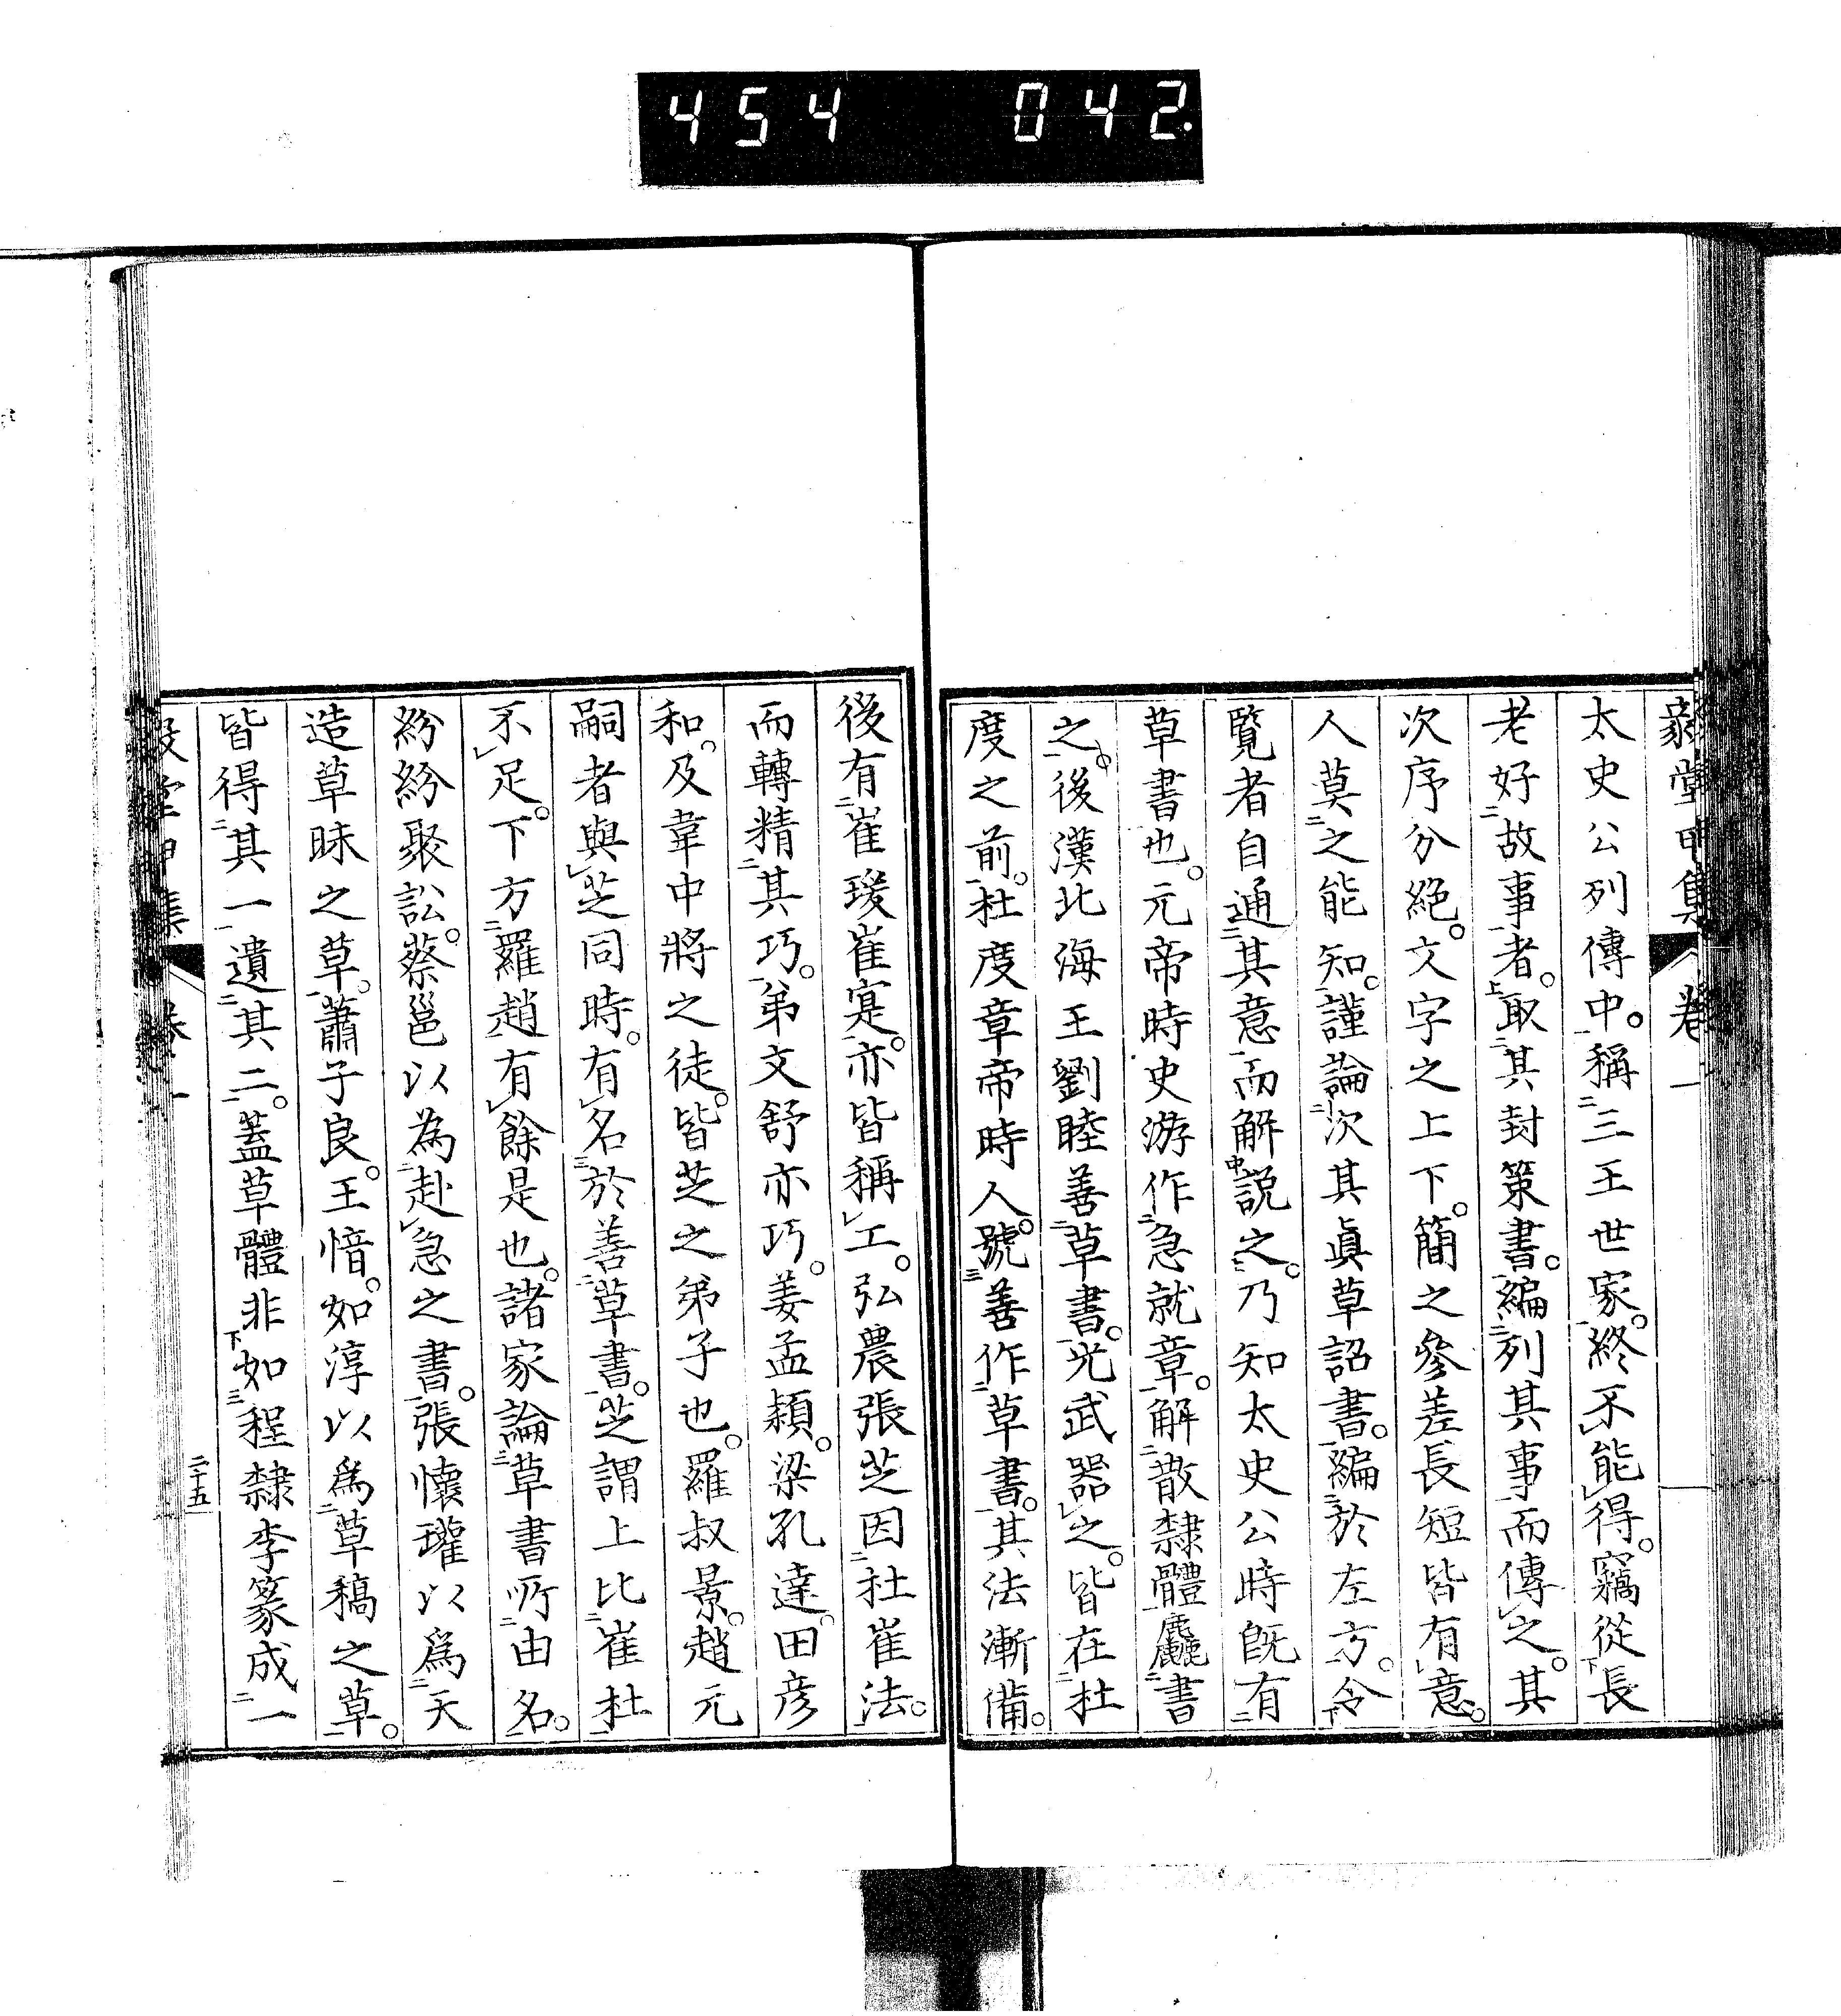 454 042.
毅堂甲集 卷一
太史公列傳中。稱三王世家。終不能得。竊從長
老好故事者。取其封策書。編列其事而傳之。其
次序分絕。文字之上下。簡之參差長短皆有意。
人莫之能知。謹論次其眞草詔書。編於左方。令
覽者自通其意而解說之。乃知太史公時旣有
草書也。元帝時史游作急就章。解散隸體麤書
之。後漢北海王劉睦善草書。光武器之。皆在杜
度之前。杜度章帝時人。號善作草書。其法漸備。
後有崔瑗崔寔。亦皆稱工。弘農張芝因杜崔法。
而轉精其巧。弟文舒亦巧。姜孟穎。梁孔達。田彦
和。及韋中將之徒。皆芝之弟子也。羅叔景。趙元
嗣者與芝同時。有名於善草書。芝謂上比崔杜
不足。下方羅趙有餘是也。諸家論草書所由名。
紛紛聚訟。蔡邕以為赴急之書。張懷瓘以爲天
造草昧之草。蕭子良。王愔。如淳以爲草稿之草。
皆得其一遺其二。蓋草體非如程隸李篆成一
毅堂甲集 卷一 二十五